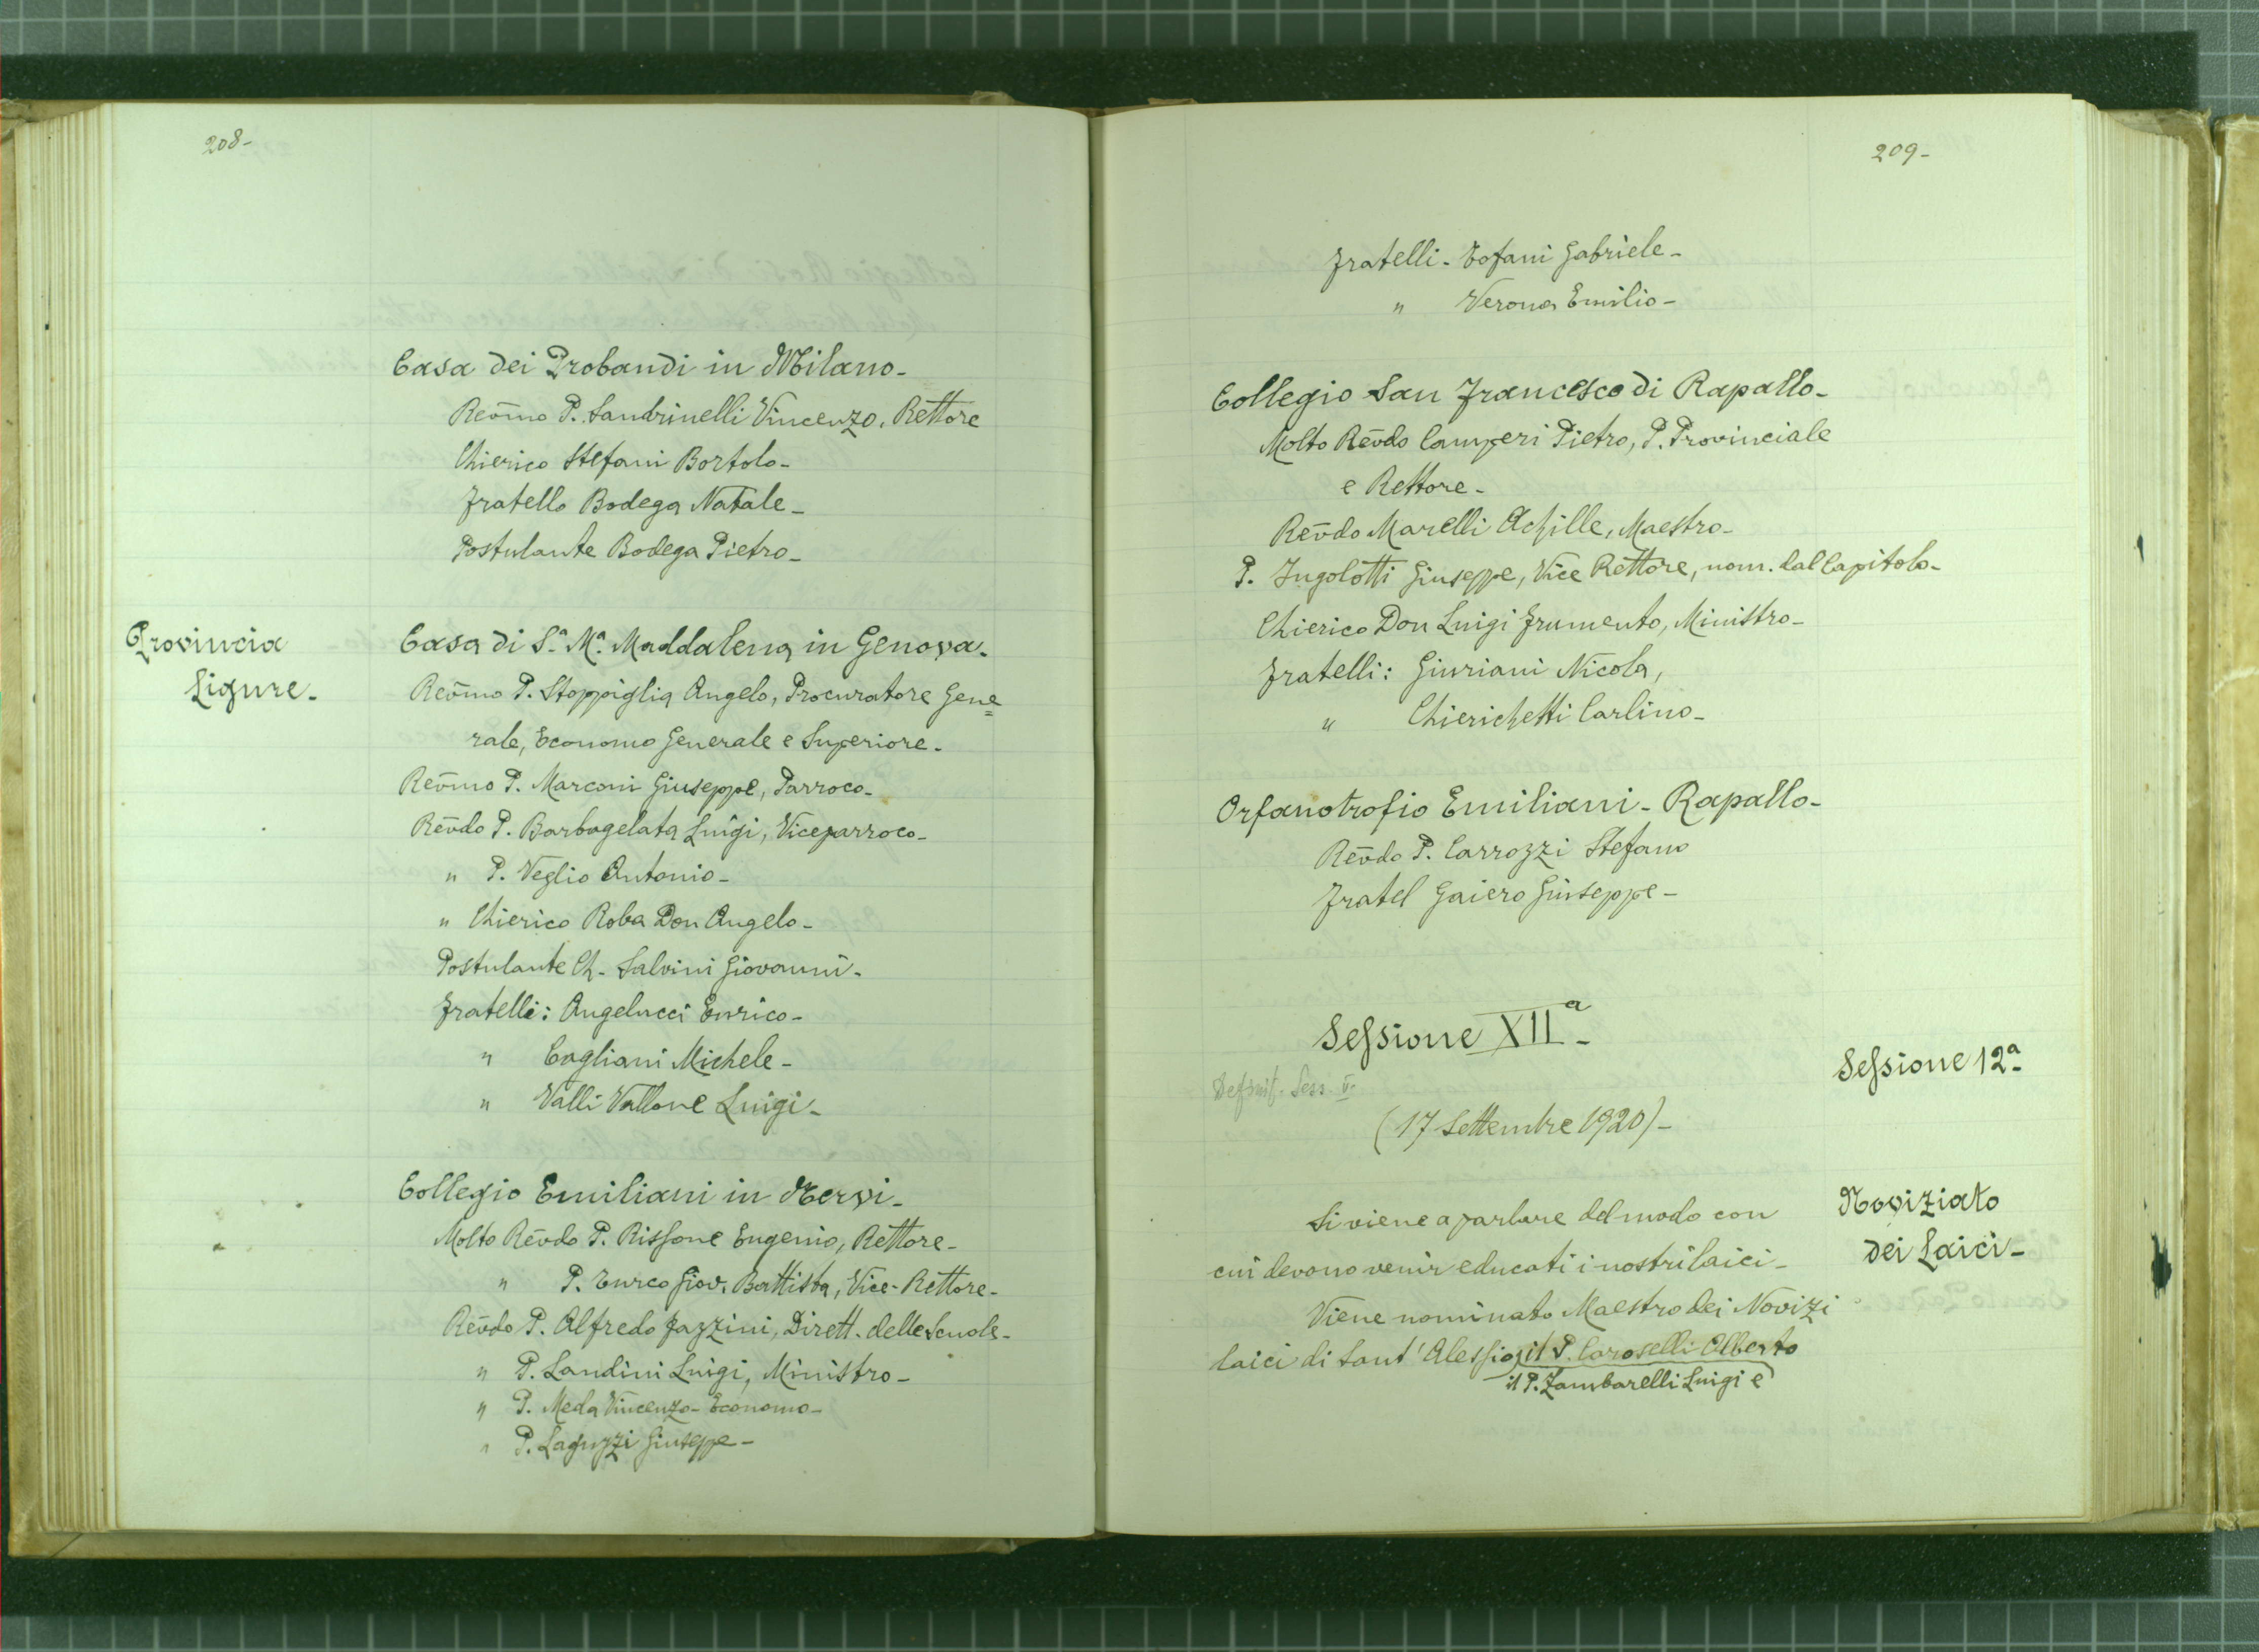 208-
Casa dei Probandi in Milano-
Rev̅mo P. Sandrinelli Vincenzo, Rettore
Chierico Stefani Bortolo-
Fratello Bodega Natale-
Postulante Bodega Pietro-
Provincia
Ligure-
Casa di S.ª M.ª Maddalena in Genova-
Rev̅mo P. Stoppiglia Angelo, Procuratore Gene=
rale, Economo Generale e Superiore-
Rev̅mo P. Marconi Giuseppe, Parroco-
Rev̅do P. Barbagelata Luigi, Viceparroco-
" P. Veglio Antonio-
" Chierico Roba Don Angelo-
Postulante Ch. Salvini Giovanni-
Fratelli: Angelucci Enrico-
" Cagliani Michele-
" Valli Vallone Luigi-
Collegio Emiliani in Nervi-
Molto Rev̅do P. Rissone Eugenio, Rettore-
" P. Turco Giov. Battista, Vice-Rettore-
Rev̅do P. Alfredo Fazzini, Dirett. delle Scuole-
" P. Landini Luigi, Ministro-
" P. Meda Vincenzo- Economo-
" P. Laguzzi Giuseppe-
209-
Fratelli- Tofani Gabriele-
" Verona Emilio-
Collegio San Francesco di Rapallo-
Molto Rev̅do Camperi Pietro, P. Provinciale
e Rettore-
Rev̅do Marelli Achille, Maestro-
P. Ingolotti Giuseppe, Vice Rettore, nom. dal Capitolo-
Chierico Don Luigi Frumento, Ministro-
Fratelli: Giuriani Nicola,
" Chierichetti Carlino-
Orfanotrofio Emiliani- Rapallo-
Rev̅do P. Carrozzi Stefano
Fratel Gaiero Giuseppe-
Sessione XIIª-
Sessione 12ª-
Definit. Sess. V.
(17 Settembre 1920)-
Noviziato
dei Laici-
Si viene a parlare del modo con
cui devono venir educati i nostri laici-
Viene nominato Maestro dei Novizi
laici di Sant' Alessio, il P. Caroselli Alberto
il P. Zambarelli Luigi e